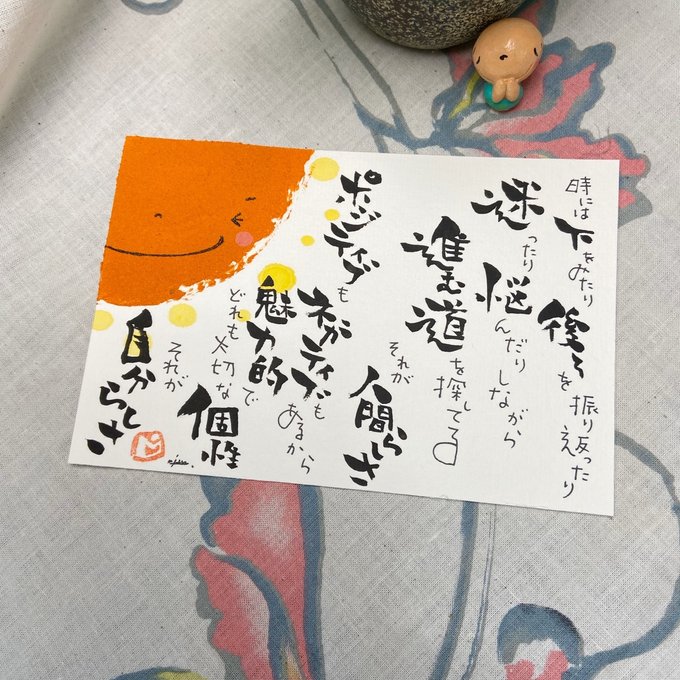 時には下をみたり
後ろを振り返ったり
迷ったり
悩んだりしながら
進む道を探してる
それが
人間らしさ
ポジティブも
ネガティブもあるから
魅力的で
どれも大切な個性
それが
自分らしさ